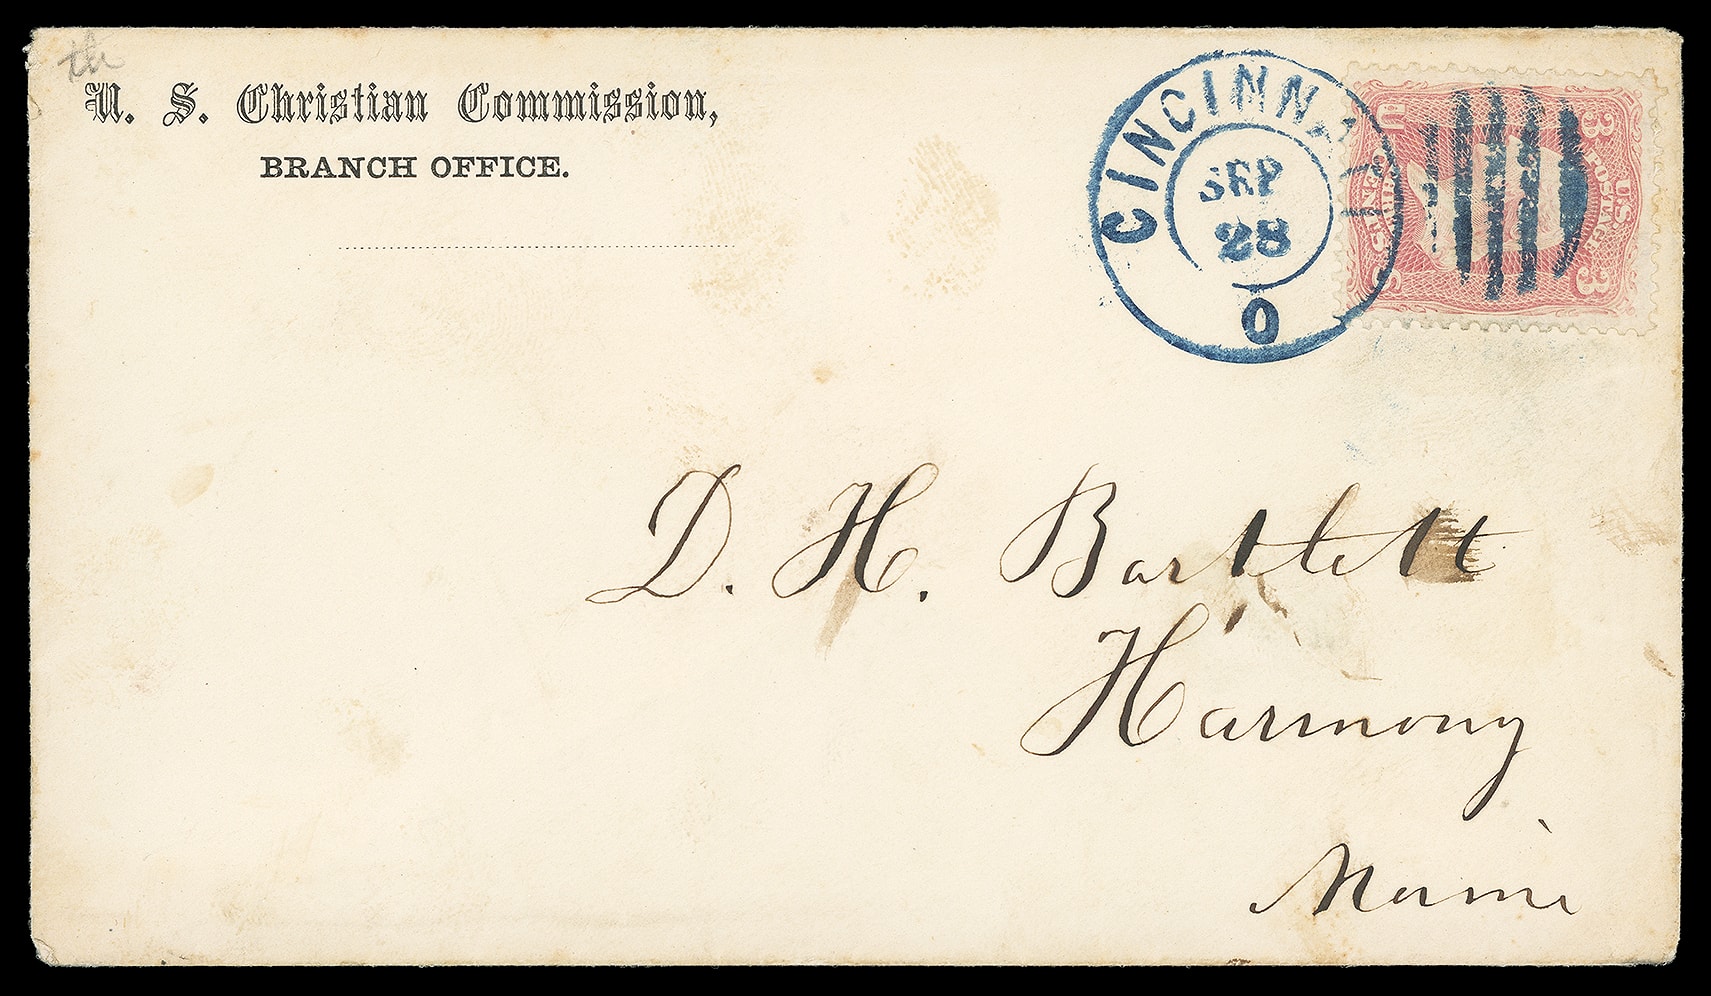 th
U. S. Christian Commission,
BRANCH OFFICE.
CINCINNATI
SEP
28
O
U 3
U.S. POSTAGE
3
D. H. Bartlett
Harmony
Maine